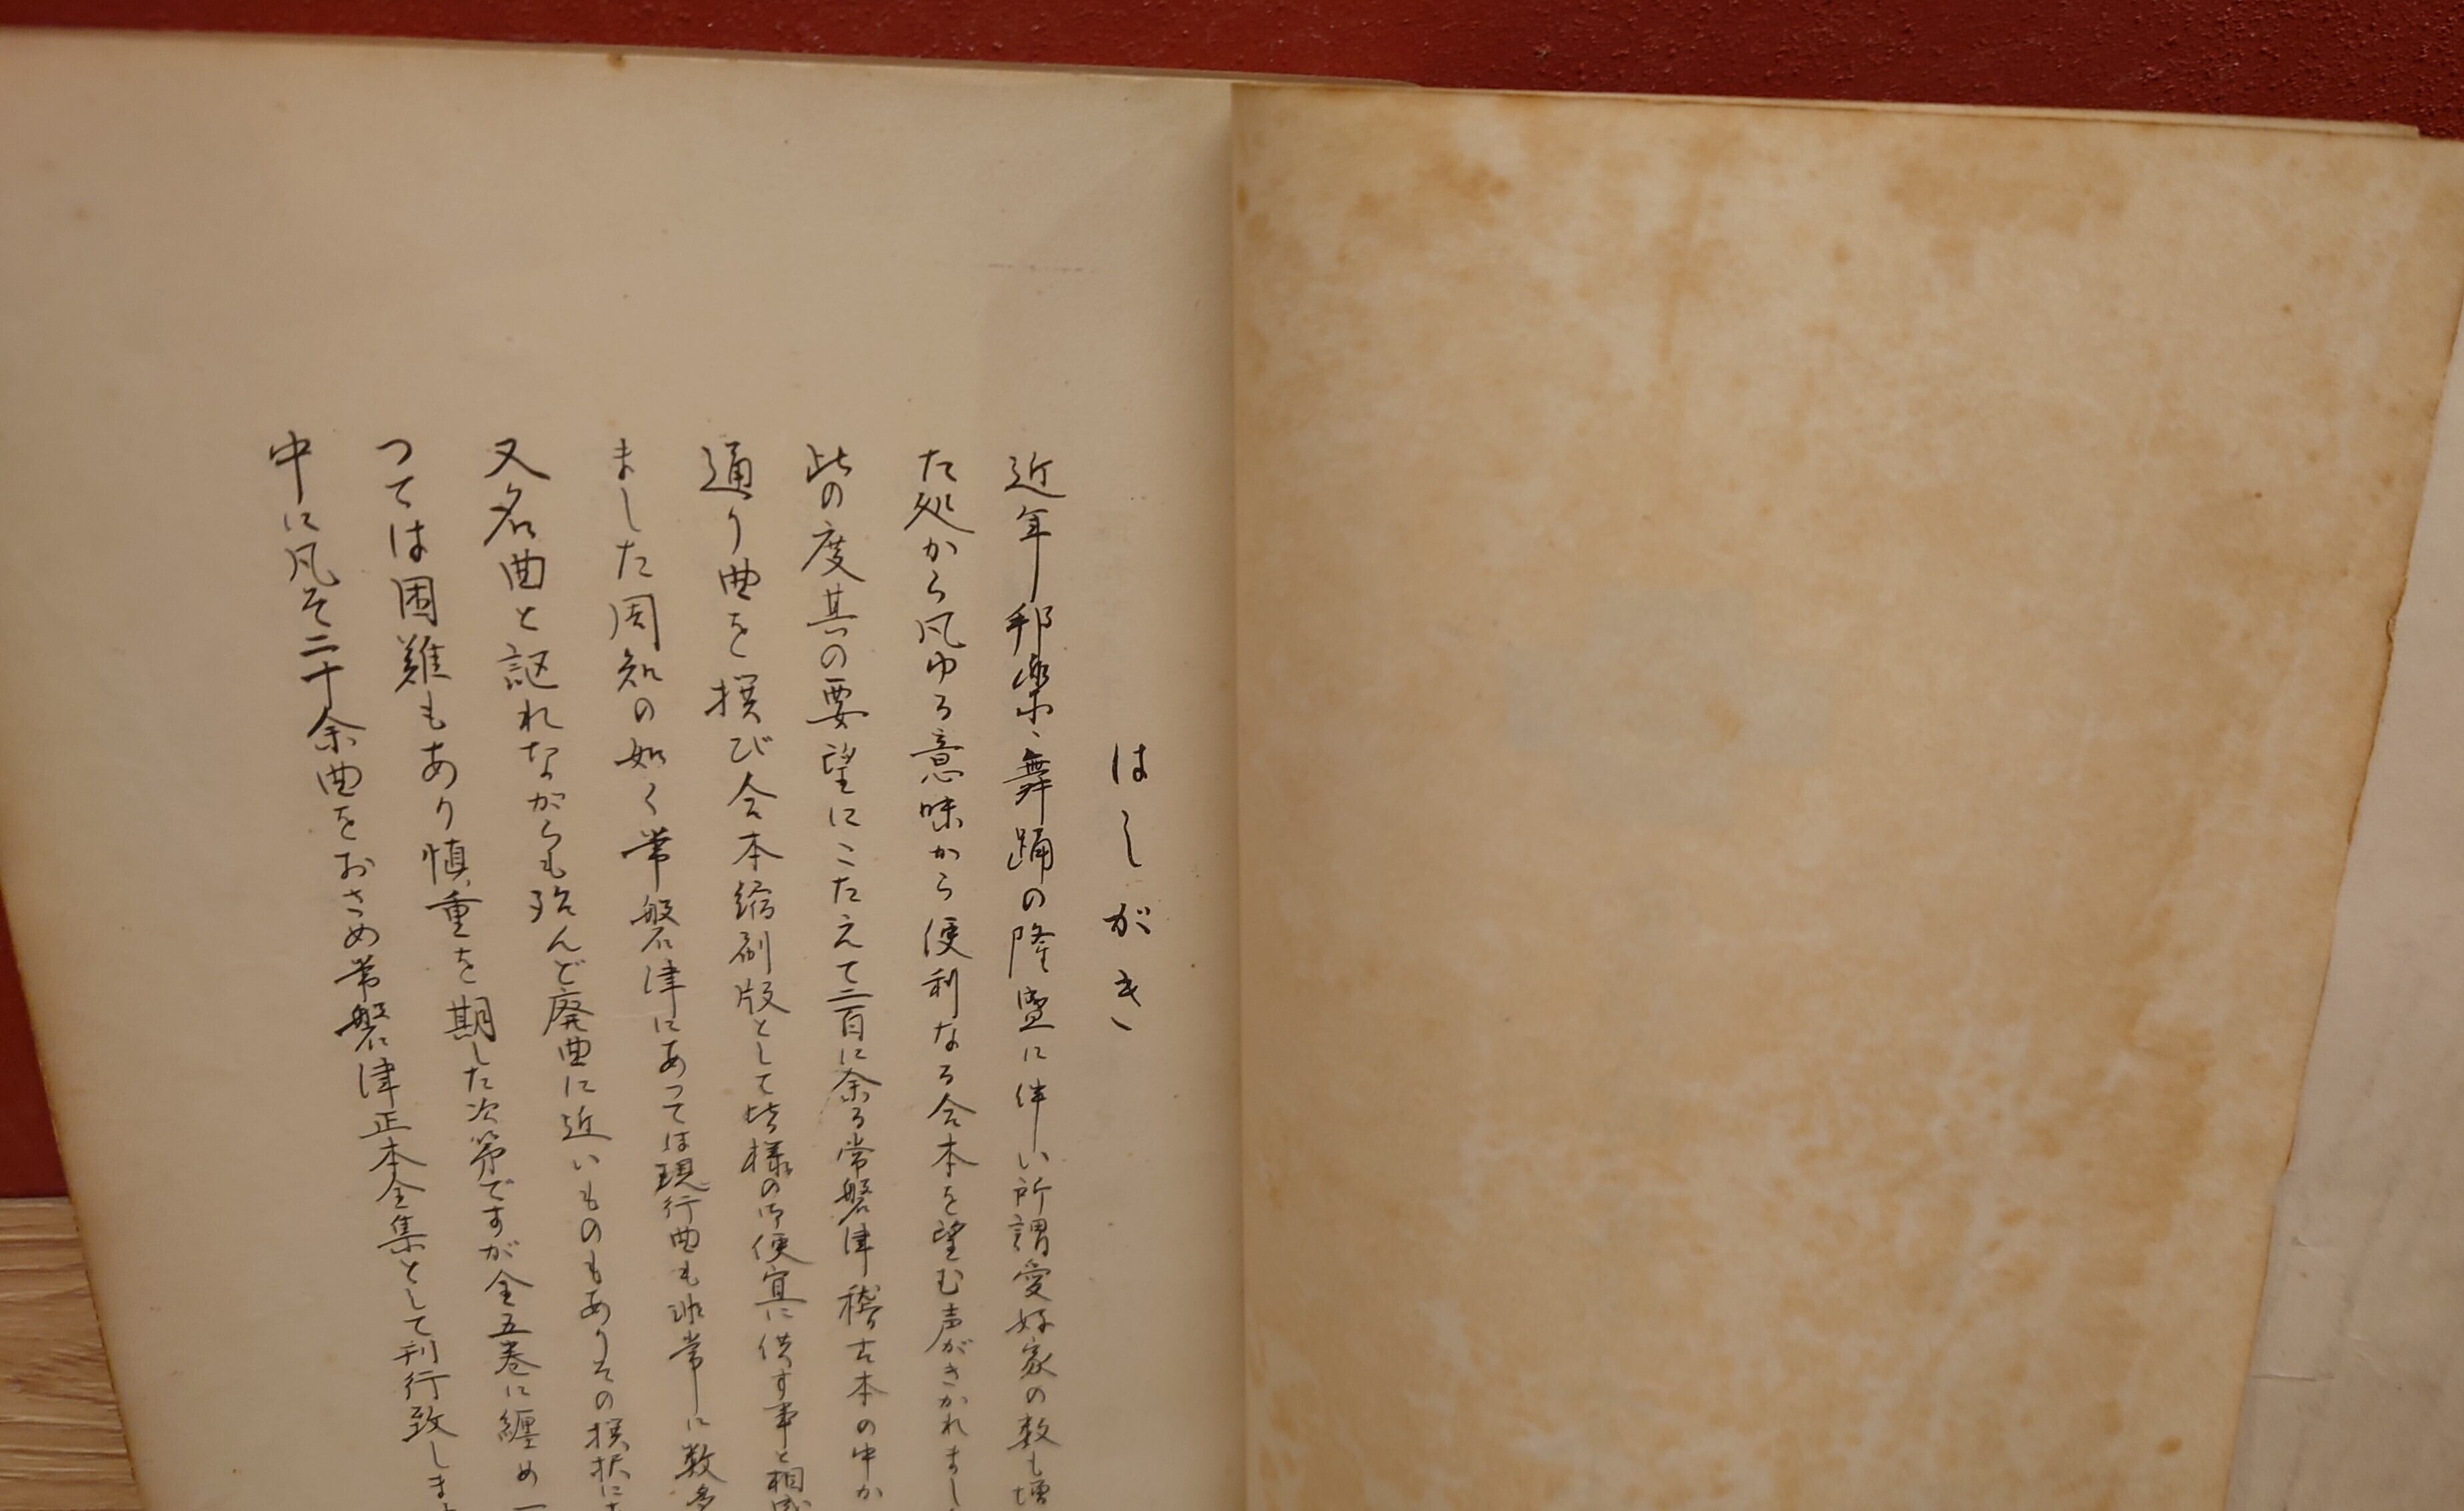 はしがき
近年邦楽、舞踊の隆盛に伴い所謂愛好家の数も増
た処から凡ゆる意味から便利なる合本を望む声がきかれまし
此の度其の要望にこたえて二百に余る常磐津稽古本の中か
通り曲を撰び合本縮刷版として皆様の御便宜に供す事と相成
ました周知の如く常磐津にあっては現行曲も非常に数多
又名曲と謳れながらも殆んど廃曲に近いものもありその撰択にあ
つては困難もあり慎重を期した次第ですが全五巻に纒め一
中に凡そ二十余曲をおさめ常磐津正本全集として刊行致しま